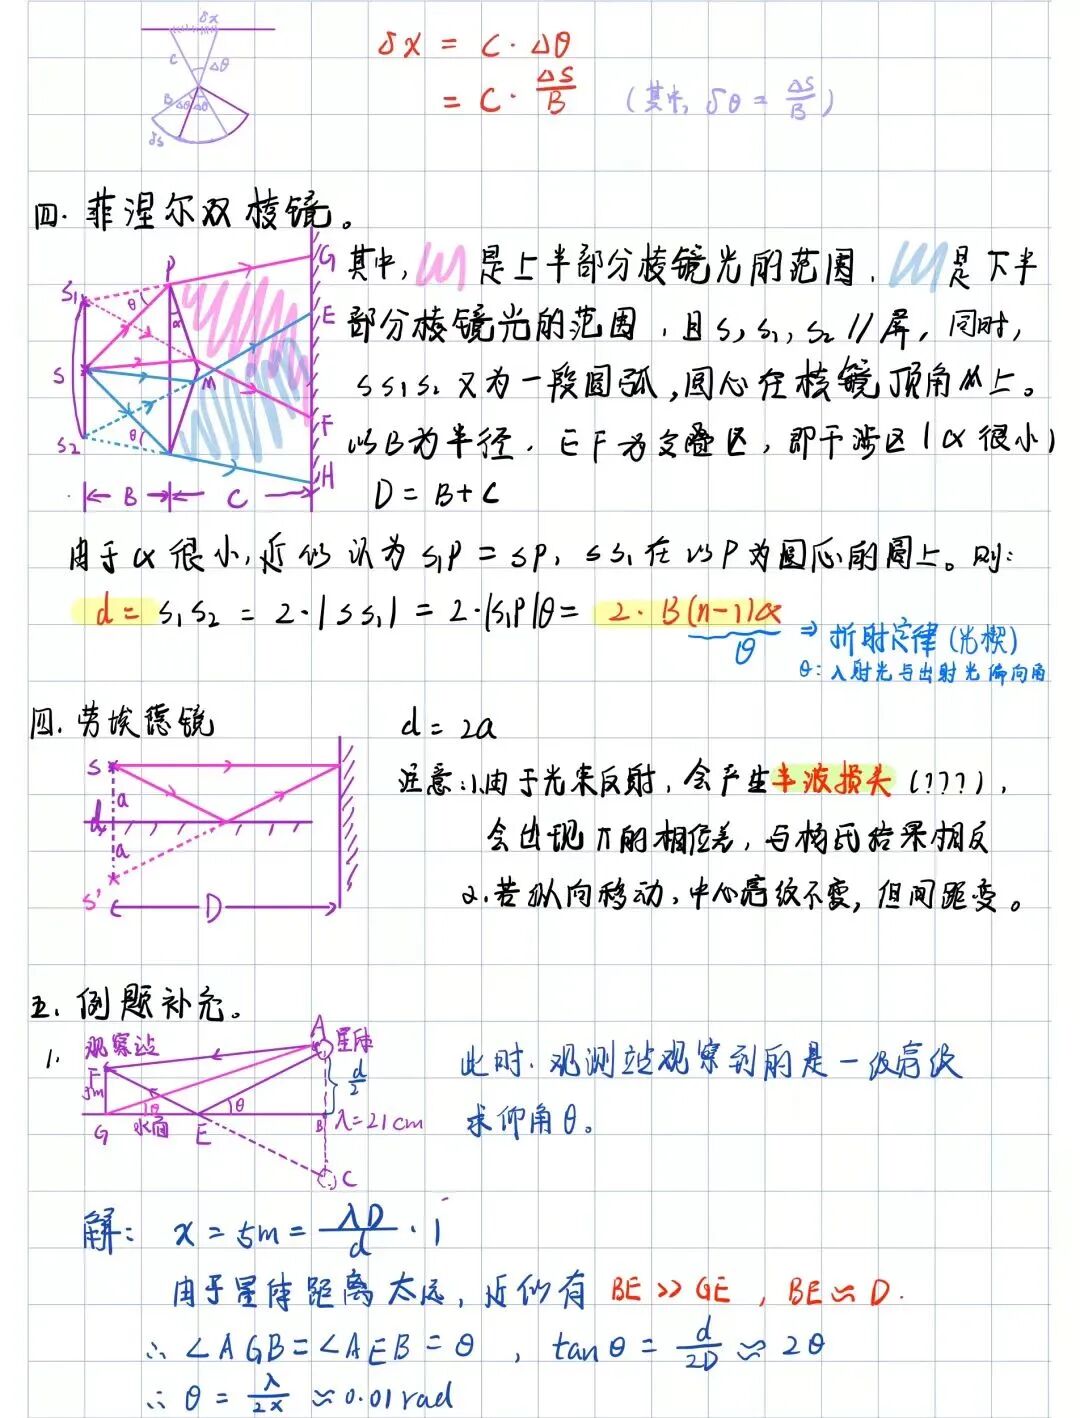 δx
C Δθ
B Δθ Δθ
δs
δx = C · Δθ
= C · ΔS/B (其中, δθ = ΔS/B)
四. 菲涅尔双棱镜。
S₁ θ P α G
E
S M
F
S₂ θ H
B C
其中, 是上半部分棱镜光的范围, 是下半
部分棱镜光的范围, 且 S, S₁, S₂ // 屏, 同时,
SS₁S₂ 又为一段圆弧, 圆心在棱镜顶角 M 上。
以B为半径, EF为交叠区, 即干涉区 (α很小)
D = B + C
由于α很小, 近似认为 S₁P = SP, SS₁ 在以P为圆心的圆上。则:
d = S₁S₂ = 2·|SS₁| = 2·|S₁P|θ = 2·B(n-1)α
θ ⇒ 折射定律(光楔)
θ: 入射光与出射光偏向角
四. 劳埃德镜
S a d a S' D
d = 2a
注意: 1.由于光束反射, 会产生半波损失 (???),
会出现π的相位差, 与杨氏结果相反
2.若纵向移动, 中心亮纹不变, 但间距变。
五. 例题补充。
1.
观察站 A 星体
F 5m d/2
θ θ B λ=21cm
G 水面 E
C
此时, 观测站观察到的是一级亮纹
求仰角θ。
解: x = 5m = λD/d · j
由于星体距离太远, 近似有 BE >> GE, BE ≈ D.
∴ ∠AGB = ∠AEB = θ, tanθ = d/2D ≈ 2θ
∴ θ = λ/2x ≈ 0.01 rad